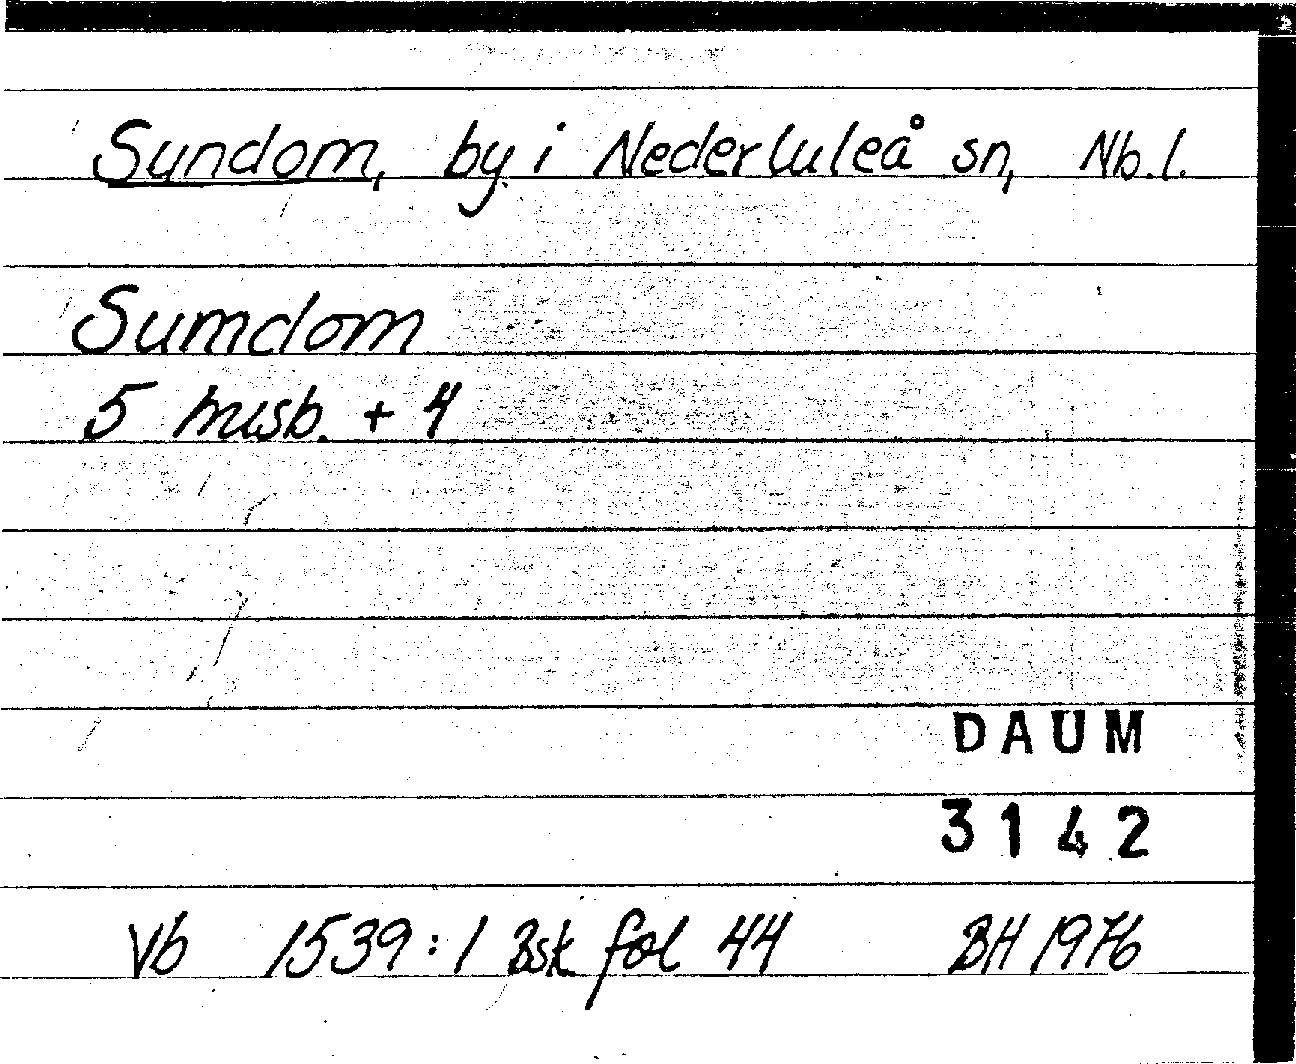 Sundom, by i Nederluleå sn, Nb.l.
Sumdom
5 husb. + 4
DAUM
3142
Vb 1539:1 Bsk fol 44 BH 1976